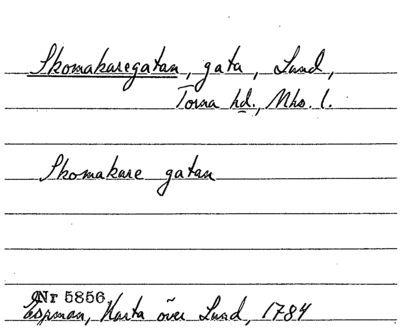 Skomakaregatan, gata, Lund,
Torna hd., Mhs. l.
Skomakare gatan
Nr 5856
Espman, Karta över Lund, 1784